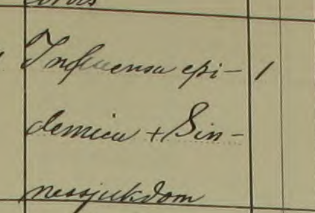 Influensa epi- 1
demica + Sin-
nessjukdom